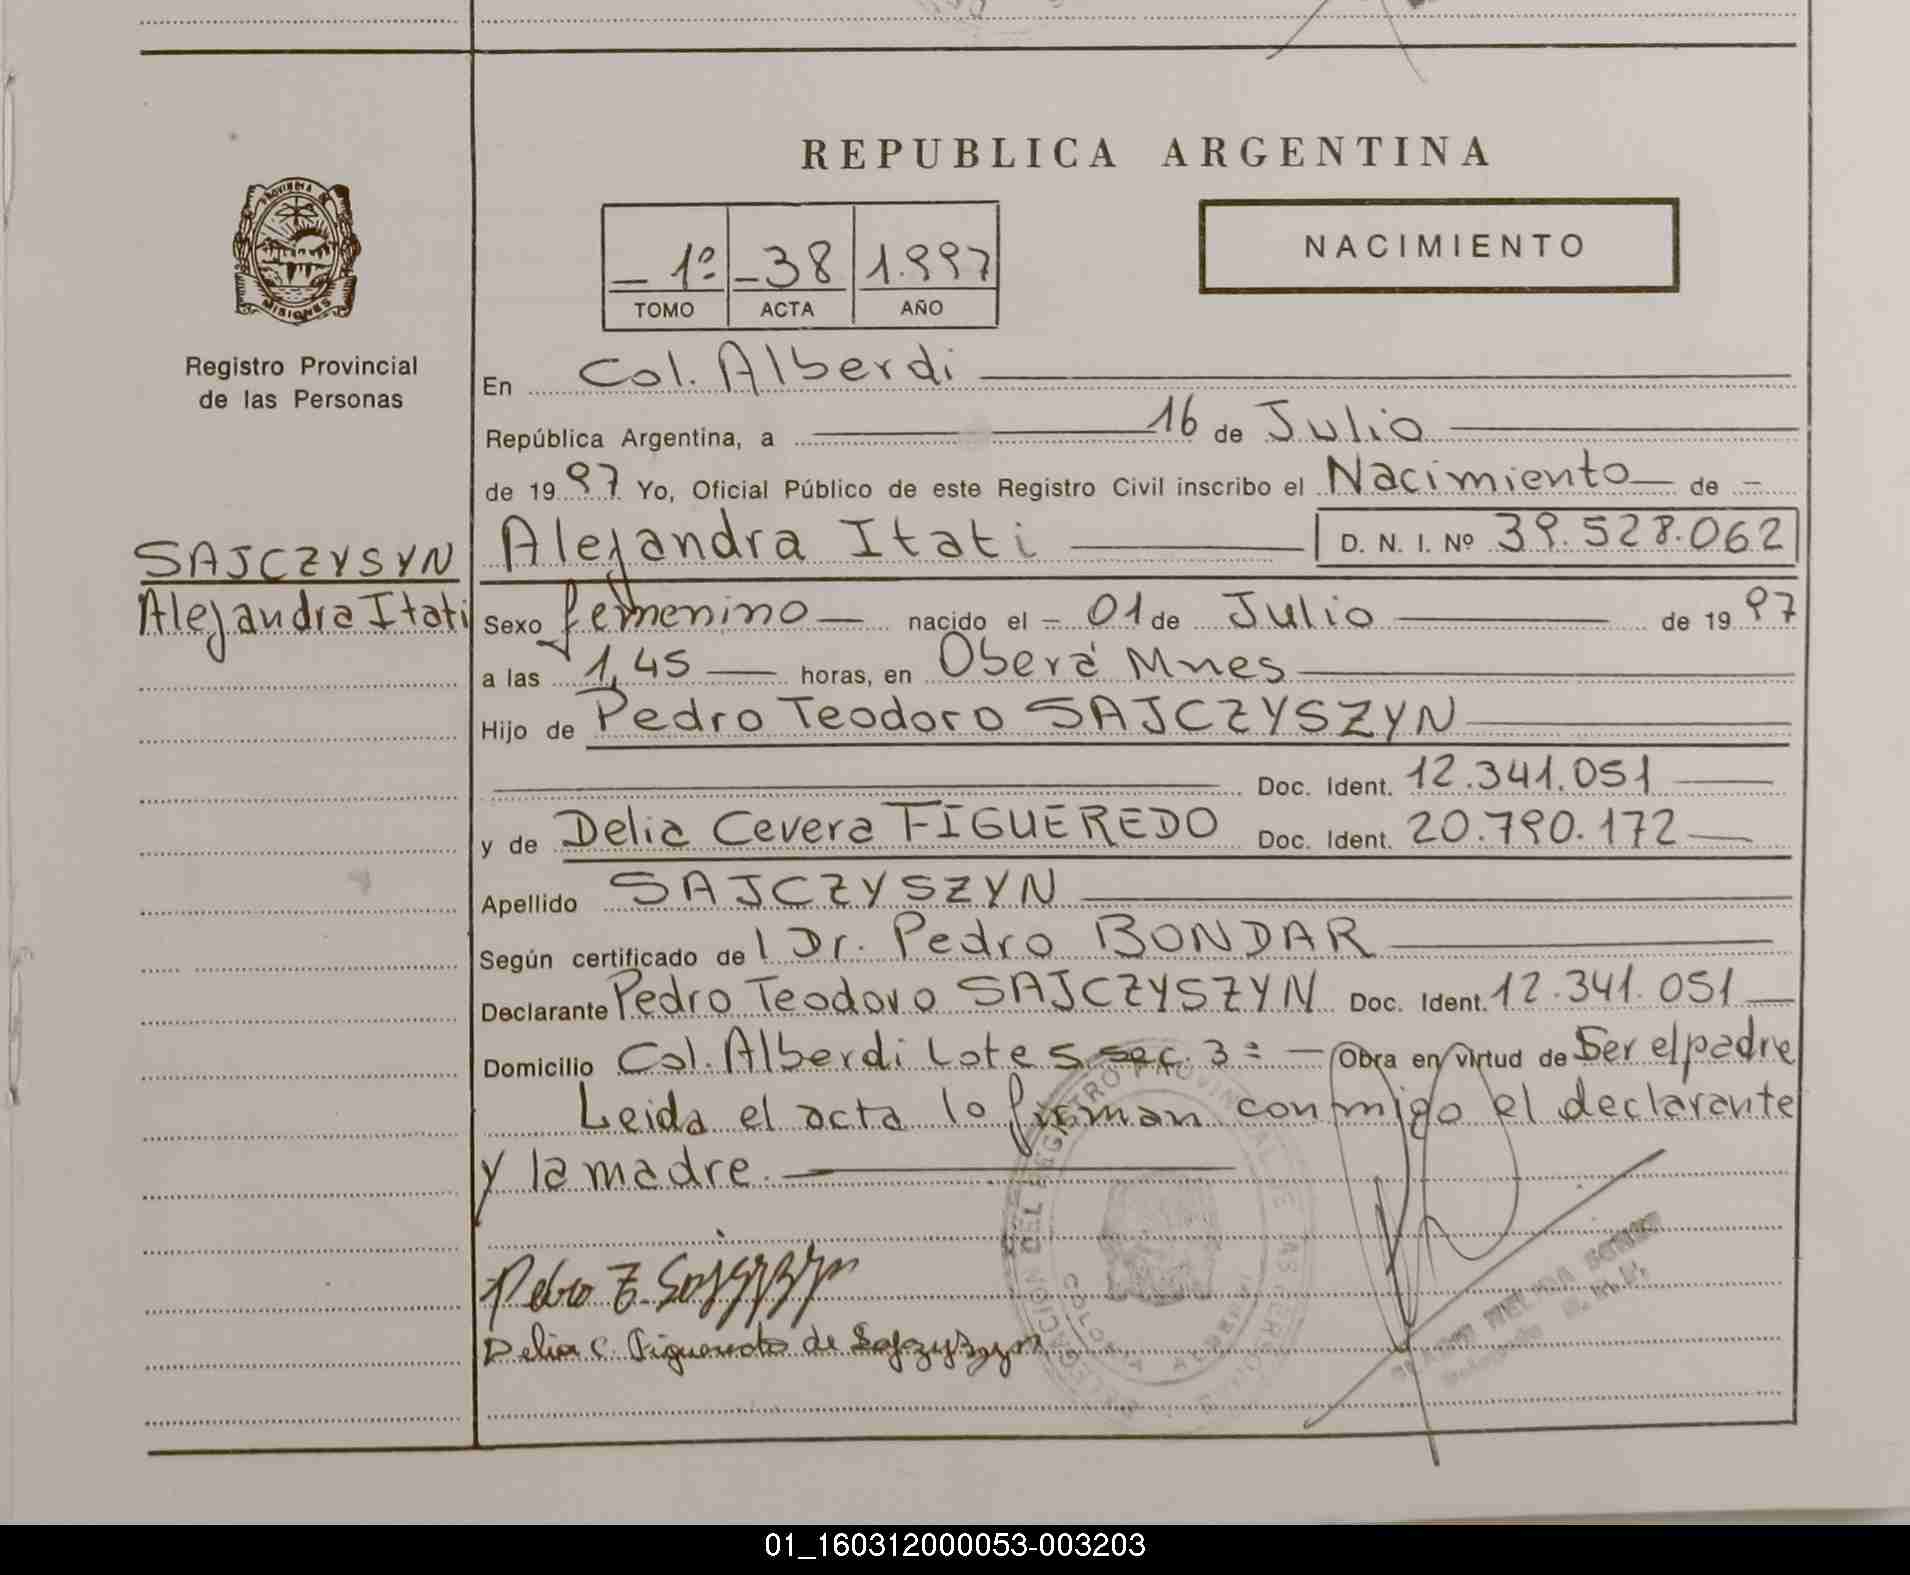 REPUBLICA ARGENTINA
PROVINCIA DE
MISIONES
Registro Provincial
de las Personas
SAJCZYSYN
Alejandra Itati
1º -38 1.997
TOMO ACTA AÑO
NACIMIENTO
En Col. Alberdi
República Argentina, a 16 de Julio
de 1997 Yo, Oficial Público de este Registro Civil inscribo el Nacimiento de
Alejandra Itati D. N. I. Nº 39.528.062
Sexo femenino nacido el 01 de Julio de 1997
a las 1,45 horas, en Oberá Mnes
Hijo de Pedro Teodoro SAJCZYSZYN
Doc. Ident. 12.341.051
y de Delia Cevera FIGUEREDO Doc. Ident. 20.790.172
Apellido SAJCZYSZYN
Según certificado de l Dr. Pedro BONDAR
Declarante Pedro Teodoro SAJCZYSZYN Doc. Ident. 12.341.051
Domicilio Col. Alberdi Lote 5 sec. 3ª Obra en virtud de Ser el padre
Leida el acta lo firman conmigo el declarante
y la madre.
DELEGACION DEL REGISTRO PROVINCIAL DE LAS PERSONAS
COLONIA ALBERDI
Delia C. Figueredo de Sajczyszyn
01_160312000053-003203